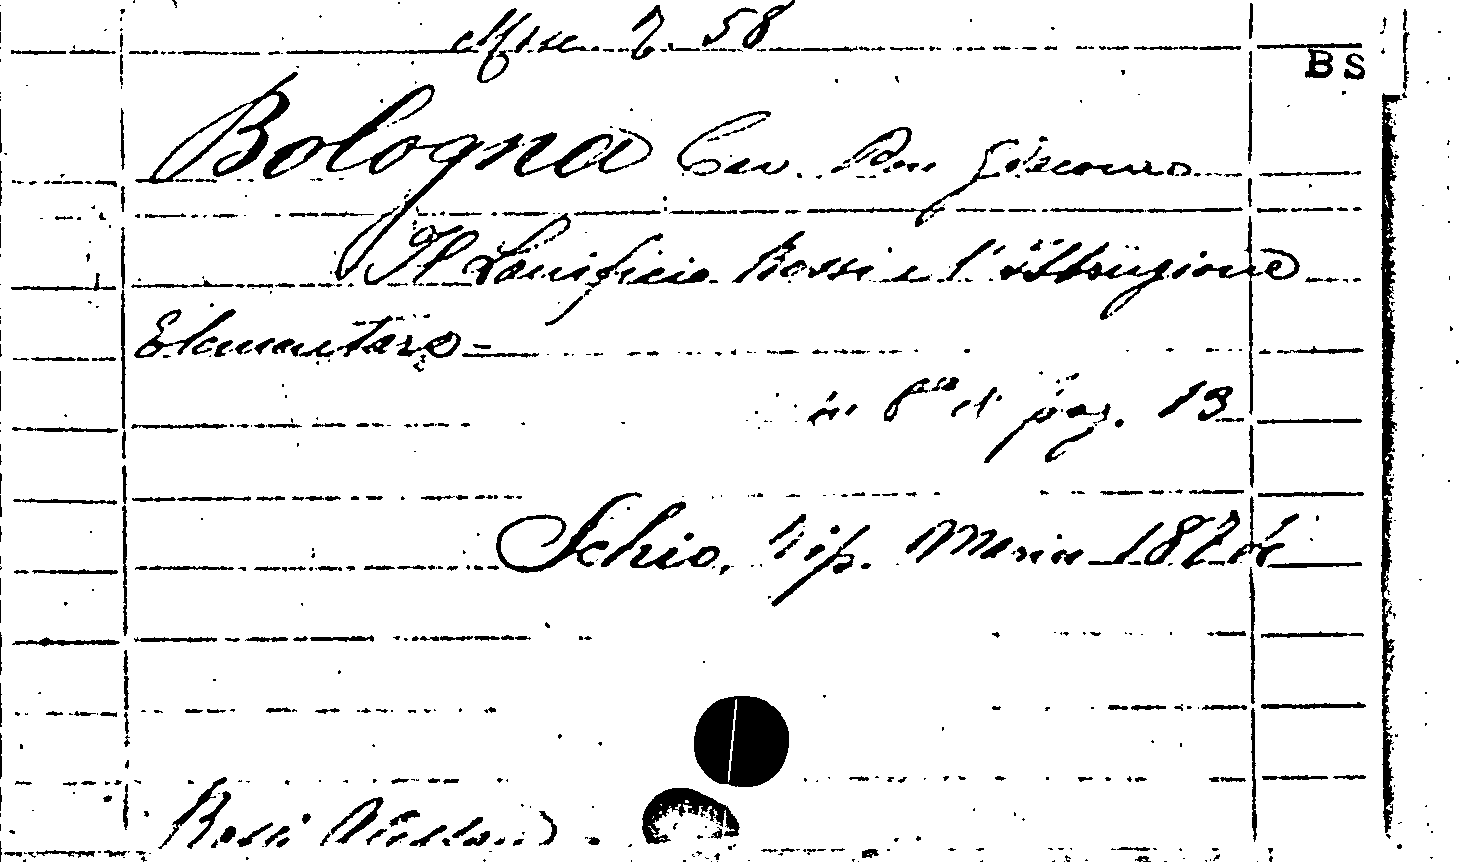 Misc. Z. 58
BS
Bologna Cav. Don Giacomo
Il Lanificio Rossi e l'istruzione
Elementare =
in 8° di pag. 13
Schio, Tip. Marin 1876
Rossi Alessandro